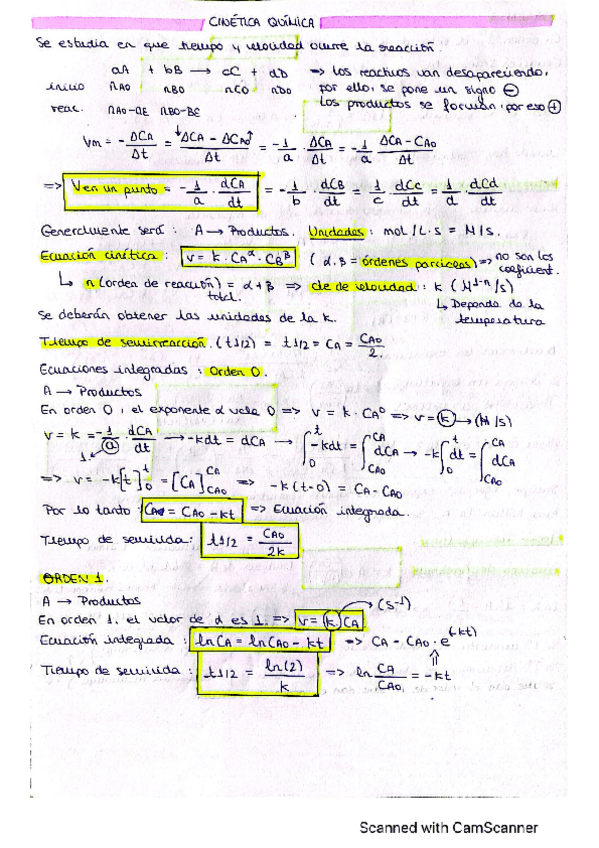 CINÉTICA QUÍMICA
Se estudia en que tiempo y velocidad ocurre la reacción.
aA + bB → cC + dD => Los reactivos van desapareciendo,
inicio nAO nBO nCO nDO por ello, se pone un signo ⊖
reac. nAO-nE nBO-BE Los productos se forman, por eso ⊕
Vm = - ΔCA/Δt = ΔCA - ΔCAO/Δt = - 1/a · ΔCA/Δt = - 1/a · ΔCA - CAO/Δt
=> V en un punto = - 1/a · dCA/dt = - 1/b · dCB/dt = 1/c · dCc/dt = 1/d · dCd/dt
Generalmente será: A → Productos. Unidades: mol/L·s = M/s.
Ecuación cinética: v = k · CA^α · CB^β (α, β = órdenes parciales) => no son los coeficient.
↳ n (orden de reacción) total = α + β => cte de velocidad: k (M^1-n/s)
↳ Depende de la temperatura
Se deberán obtener las unidades de la k.
Tiempo de semirreacción. (t1/2) = t1/2 = CA = CAO/2.
Ecuaciones integradas: Orden 0.
A → Productos
En orden 0, el exponente α vale 0 => v = k · CA^0 => v = k → (M/s)
v = k = - 1/a · dCA/dt → -kdt = dCA → ∫0^t -kdt = ∫CAO^CA dCA → -k ∫0^t dt = ∫CAO^CA dCA
1
=> v = -k[t]0^t = [CA]CAO^CA => -k(t-0) = CA - CAO
Por lo tanto: CA = CAO - kt => Ecuación integrada.
Tiempo de semivida: t1/2 = CAO/2k
ORDEN 1.
A → Productos
En orden 1, el valor de α es 1. => v = k CA (s-1)
Ecuación integrada: lnCA = lnCAO - kt => CA - CAO · e^(-kt)
Tiempo de semivida: t1/2 = ln(2)/k => ln CA/CAO = -kt
Scanned with CamScanner